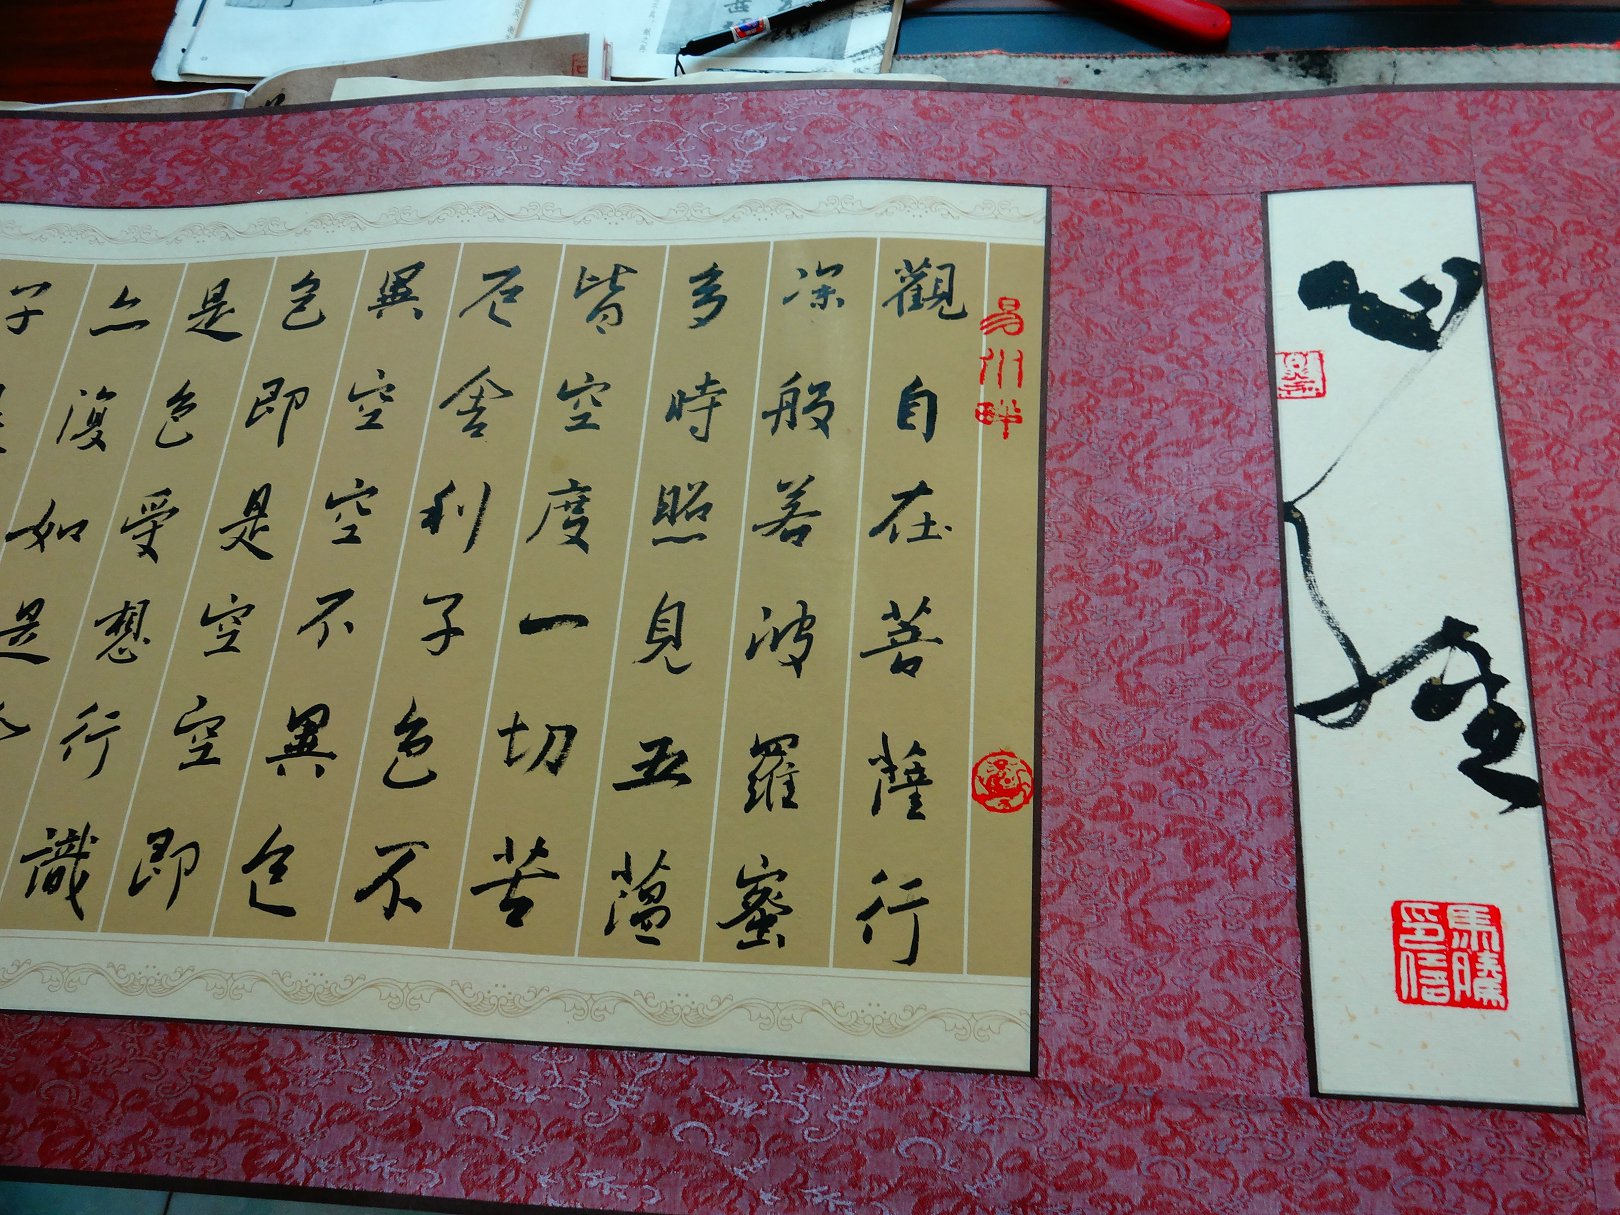 心
馬騰
印信
觀自在菩薩行
深般若波羅蜜
多時照見五蘊
皆空度一切苦
厄舍利子色不
異空空不異色
色即是空空即
是色受想行識
亦復如是
子